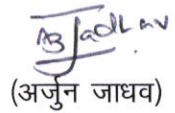 ABJadhav
(अर्जुन जाधव)